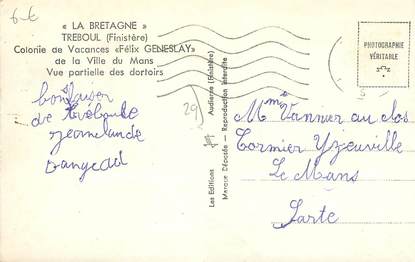 6 €
« LA BRETAGNE »
TREBOUL (Finistère)
Colonie de Vacances «Félix GENESLAY»
de la Ville du Mans
Vue partielle des dortoirs
bons baiser
de
29
Les Editions
Audierne (Finistère)
Marque Déposée - Reproduction interdite
PHOTOGRAPHIE
VÉRITABLE
Mme Vannier au clos
Cormier Yzeuville
Le Mans
Sarte